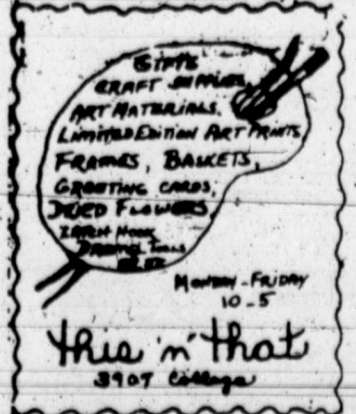 GIFTS
CRAFT SUPPLIES,
ART MATERIALS,
LIMITED EDITION ART PRINTS,
FRAMES, BASKETS,
GREETING CARDS,
DRIED FLOWERS,
LATCH HOOK
TOOLS
MONDAY - FRIDAY
10-5
this 'n' that
3907 College